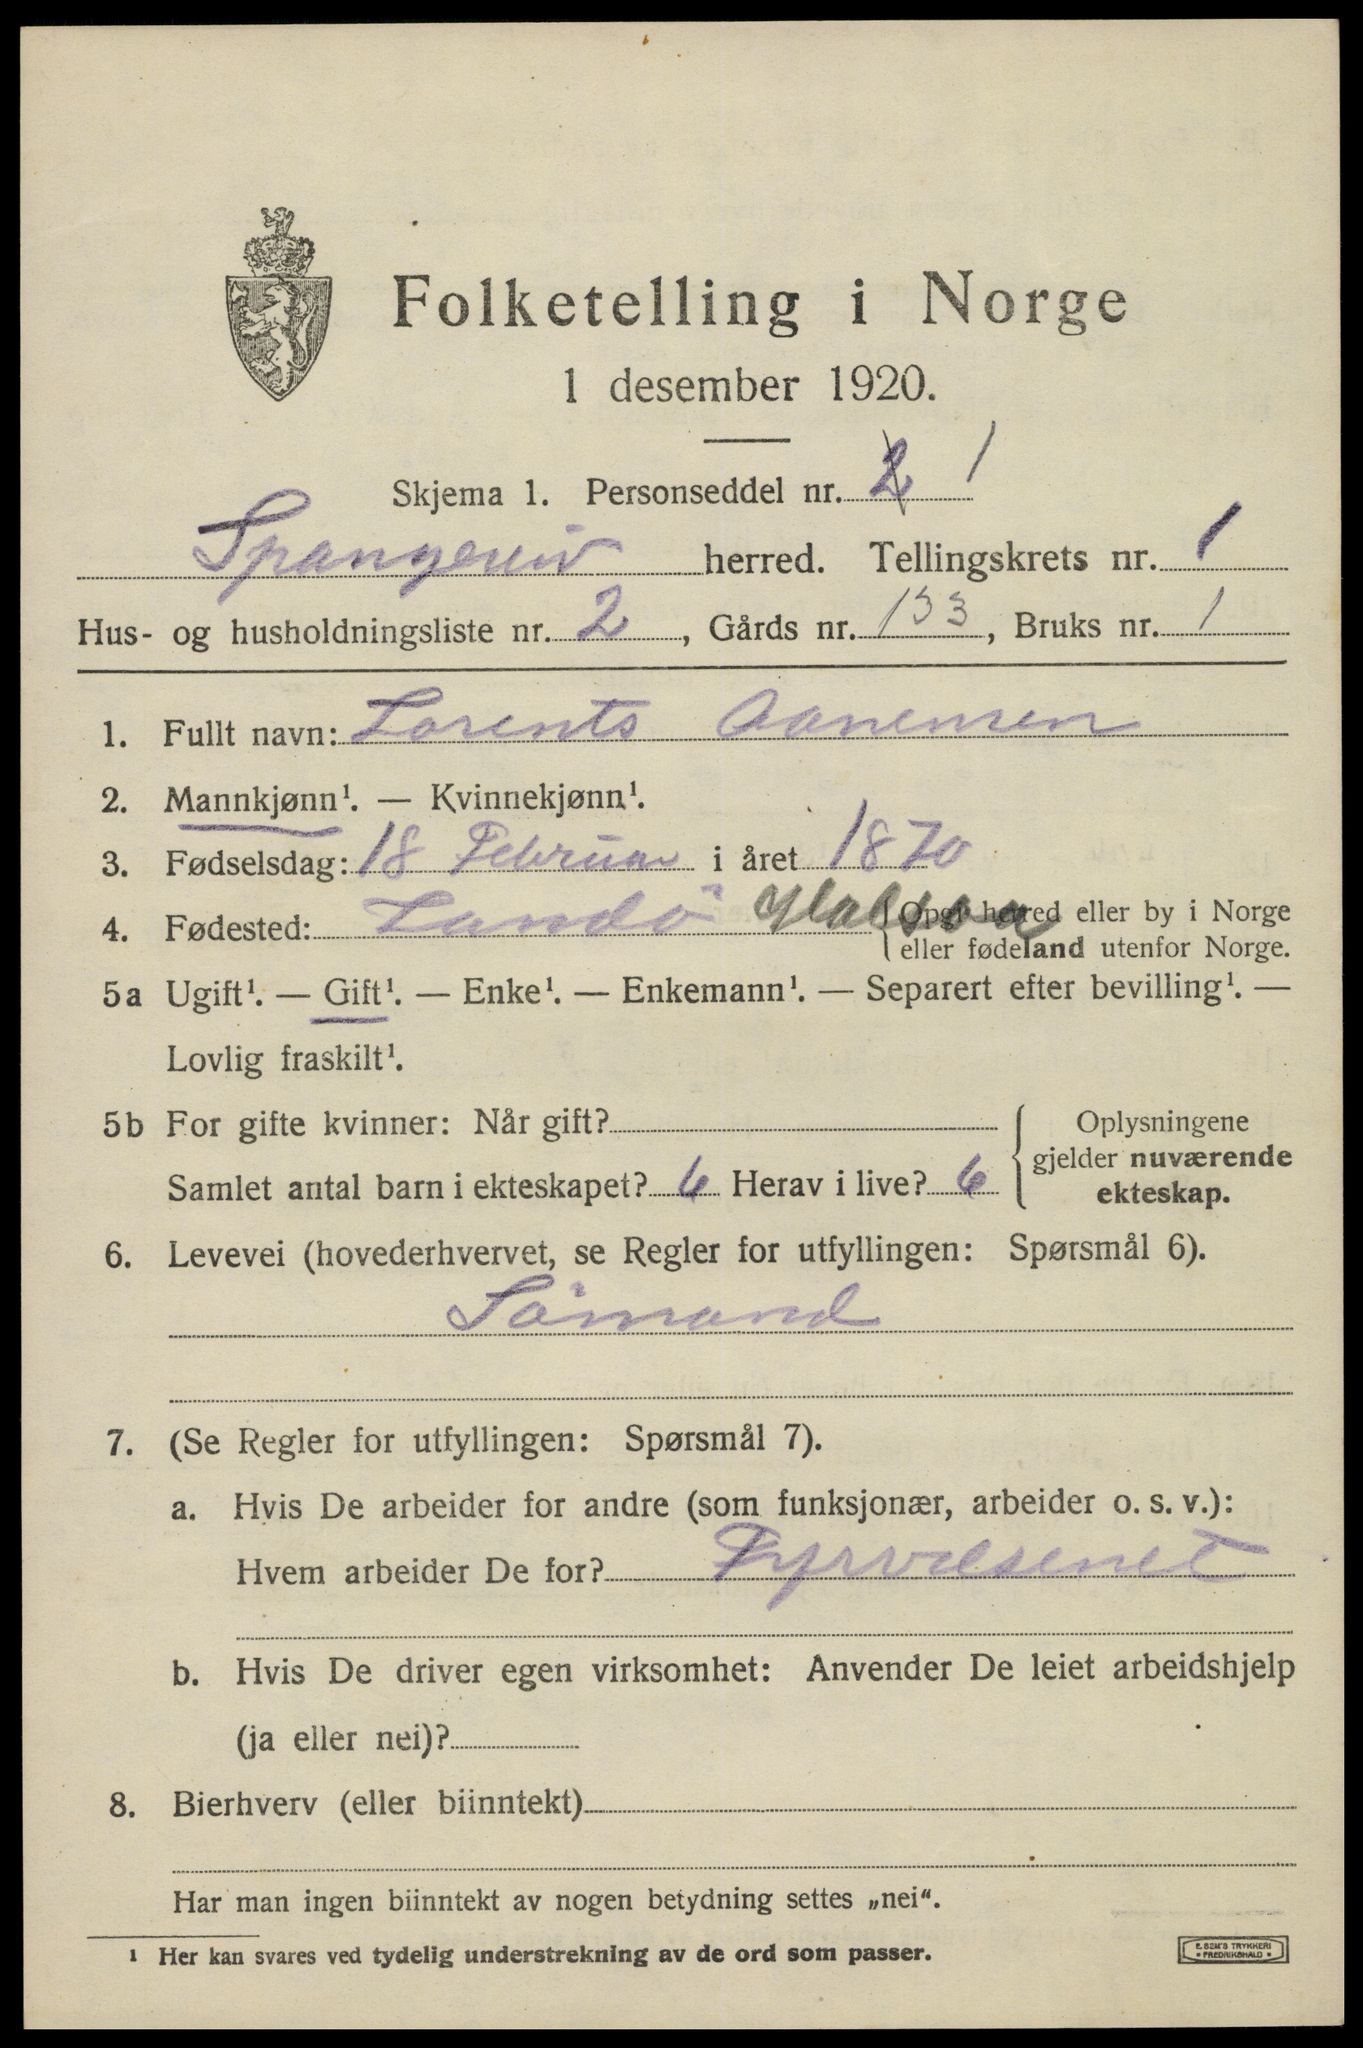 Folketelling i Norge
1 desember 1920.
Skjema 1. Personseddel nr. 2 1
Spangereid herred. Tellingskrets nr. 1
Hus- og husholdningsliste nr. 2, Gårds nr. 133, Bruks nr. 1
1. Fullt navn: Lorents Aanensen
2. Mannkjønn¹. — Kvinnekjønn¹.
3. Fødselsdag: 18 Februar i året 1870
4. Fødested: Landö Halsaa {Opgi herred eller by i Norge
eller fødeland utenfor Norge.
5a Ugift¹. — Gift¹. — Enke¹. — Enkemann¹. — Separert efter bevilling¹. —
Lovlig fraskilt¹.
5b For gifte kvinner: Når gift?
Samlet antal barn i ekteskapet? 6 Herav i live? 6
Oplysningene
gjelder nuværende
ekteskap.
6. Levevei (hovederhvervet, se Regler for utfyllingen: Spørsmål 6).
Sömand
7. (Se Regler for utfyllingen: Spørsmål 7).
a. Hvis De arbeider for andre (som funksjonær, arbeider o. s. v.):
Hvem arbeider De for? Fyrvæsenet
b. Hvis De driver egen virksomhet: Anvender De leiet arbeidshjelp
(ja eller nei)?
8. Bierhverv (eller biinntekt)
Har man ingen biinntekt av nogen betydning settes „nei“.
¹ Her kan svares ved tydelig understrekning av de ord som passer.
E. SEM'S TRYKKERI
• FREDRIKSHALD •